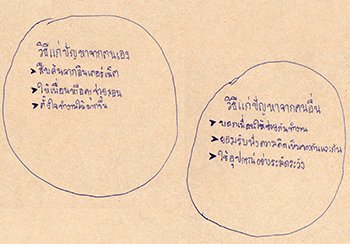 วิธีแก้ปัญหาจากตนเอง
➤ สืบค้นจากอินเตอร์เน็ต
➤ ให้เพื่อนหรือครูช่วยสอน
➤ ตั้งใจทำงานให้มากขึ้น
วิธีแก้ปัญหาจากคนอื่น
➤ บอกเพื่อนให้ช่วยกันทำงาน
➤ ยอมรับฟังความคิดเห็น
➤ ใช้อุปกรณ์อย่างระมัดระวัง